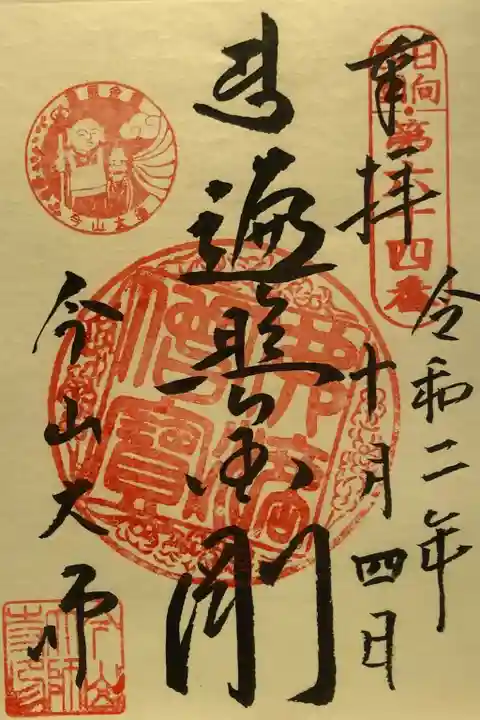 日向・第六十四番
奉拝
令和二年
十月四日
遍照金剛
佛法僧寶
今山大師
今山大師